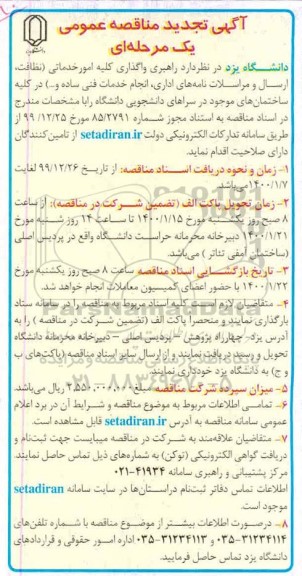 آگهی تجدید مناقصه عمومی
یک مرحله‌ای
دانشگاه یزد در نظردارد راهبری واگذاری کلیه امورخدماتی (نظافت،
ارسال و مراسلات نامه‌های اداری، انجام خدمات فنی ساده و..) در کلیه
ساختمان‌های موجود در سراهای دانشجویی دانشگاه رابا مشخصات مندرج
در اسناد مناقصه به استناد مجوز شماره ۸۵/۲۷۹۱ مورخ ۹۹/۱۲/۲۵ از
طریق سامانه تدارکات الکترونیکی دولت setadiran.ir از تامین‌کنندگان
دارای صلاحیت اقدام نماید.
۱- زمان و نحوه دریافت اسناد مناقصه: از تاریخ ۹۹/۱۲/۲۶ لغایت
۱۴۰۰/۱/۷ می‌باشد.
۲- زمان تحویل پاکت الف (تضمین شرکت در مناقصه): از ساعت
۸ صبح روز یکشنبه مورخ ۱۴۰۰/۱/۱۵ تا ساعت ۱۴ روز شنبه مورخ
۱۴۰۰/۱/۲۱ دبیرخانه محرمانه حراست دانشگاه واقع در پردیس اصلی
(ساختمان آمفی تئاتر) می‌باشد.
۳- تاریخ بازگشایی اسناد مناقصه ساعت ۸ صبح روز یکشنبه مورخ
۱۴۰۰/۱/۲۲ با حضور اعضای کمیسیون معاملات انجام خواهد شد.
۴- متقاضیان لازم است کلیه اسناد مربوط به مناقصه را در سامانه ستاد
بارگذاری نمایند و منحصرا پاکت الف (تضمین شرکت در مناقصه) را به
آدرس یزد- چهارراه پژوهش – پردیس اصلی – دبیرخانه محرمانه دانشگاه
تحویل و رسید دریافت نمایند و از ارسال سایر اسناد مناقصه (پاکت‌های ب
و ج) به دانشگاه یزد خودداری نمایند.
۵- میزان سپرده شرکت مناقصه مبلغ ۲,۵۵۰,۰۰۰,۰۰۰ ریال می‌باشد.
۶- تمامی اطلاعات مربوط به موضوع مناقصه و شرایط آن در برد اعلام
عمومی سامانه مناقصه به آدرس setadiran.ir قابل مشاهده است.
۷- متقاضیان علاقه‌مند به شرکت در مناقصه میبایست جهت ثبت‌نام و
دریافت گواهی الکترونیکی (توکن) به شماره‌های ذیل تماس حاصل نمایند.
مرکز پشتیبانی و راهبری سامانه ۴۱۹۳۴-۰۲۱
اطلاعات تماس دفاتر ثبت‌نام دراستان‌ها در سایت سامانه setadiran
موجود است.
۸- درصورت اطلاعات بیشتر از موضوع مناقصه با شماره تلفن‌های
۳۱۲۳۴۱۱۴-۰۳۵ و ۳۱۲۳۴۱۱۳-۰۳۵ اداره امور حقوقی و قراردادهای
دانشگاه یزد تماس حاصل فرمایید.